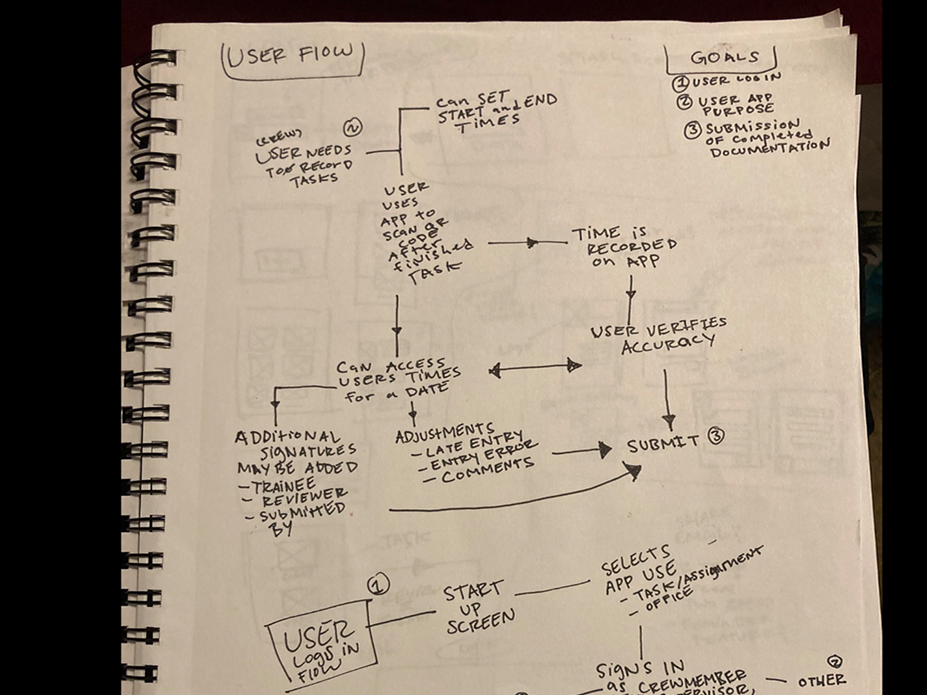 USER FLOW
GOALS
① USER LOG IN
② USER APP
PURPOSE
③ SUBMISSION
OF COMPLETED
DOCUMENTATION
can SET
START and END
TIMES
②
(CREW)
USER NEEDS
TO RECORD
TASKS
USER
USES
APP TO
SCAN QR
CODE
AFTER
finished
TASK
TIME is
RECORDED
on APP
USER VERIFIES
ACCURACY
CAN ACCESS
USERS TIMES
for a DATE
ADDITIONAL
SIGNATURES
MAY BE ADDED
- TRAINEE
- REVIEWER
- SUBMITTED
BY
ADJUSTMENTS
- LATE ENTRY
- ENTRY ERROR
- COMMENTS
SUBMIT ③
①
USER
LOGS IN
FLOW
START
UP
SCREEN
SELECTS
APP USE
- TASK/ASSIGNMENT
- OFFICE
SIGNS IN
as CREWMEMBER
②
OTHER